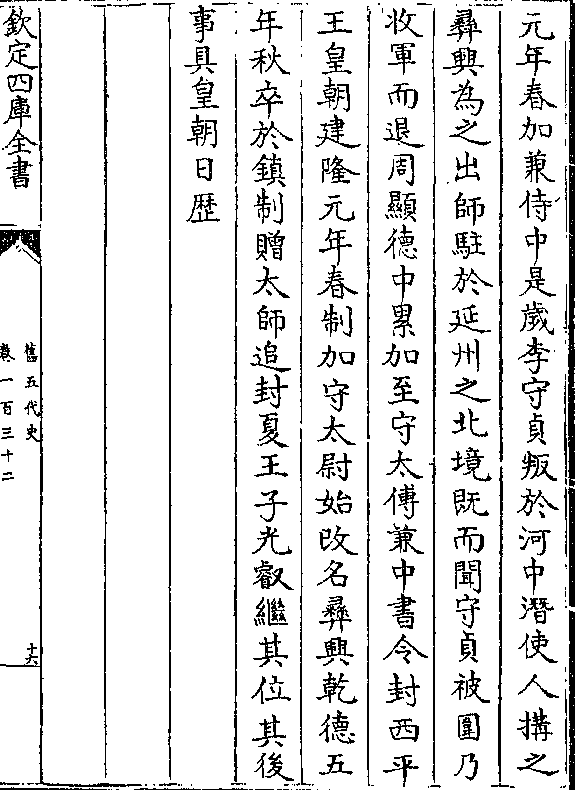 元年春加兼侍中是歲李守貞叛於河中潛使人搆之
彛興為之出師駐於延州之北境既而聞守貞被圍乃
收軍而退周顯德中累加至守太傅兼中書令封西平
王皇朝建隆元年春制加守太尉始改名彛興乾德五
年秋卒於鎮制贈太師追封夏王子光叡繼其位其後
事具皇朝日歴
欽定四庫全書
舊五代史
卷一百三十二
十六